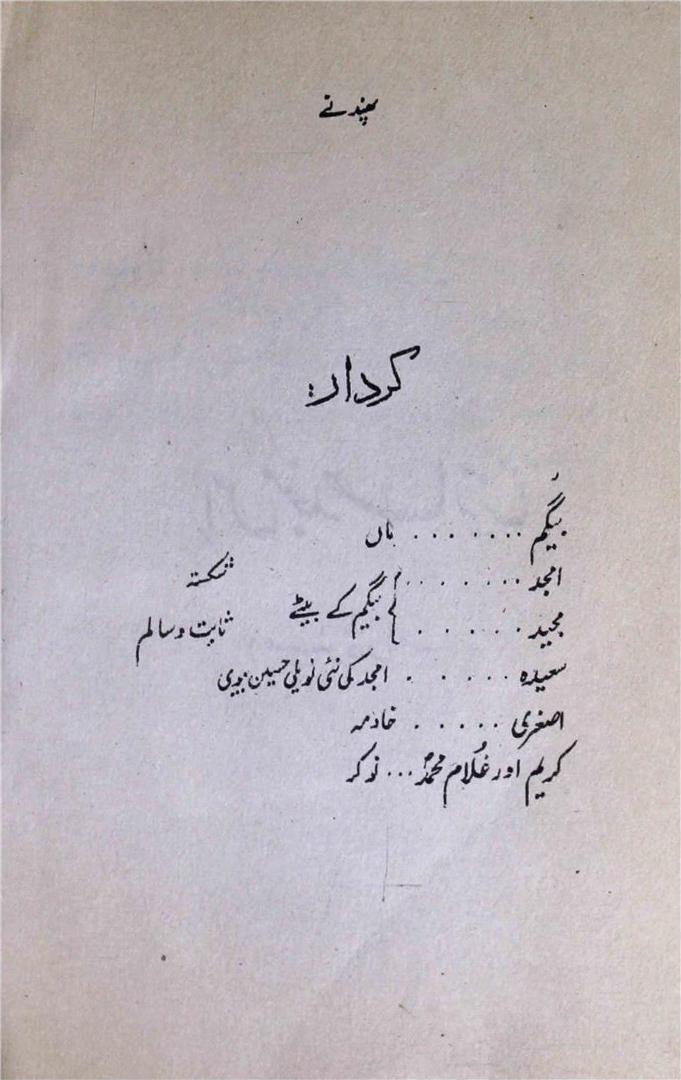 پھندنے
کردار:
بیگم ....... ماں
امجد ....... } بیگم کے بیٹے شکستہ
مجید ..... } ثابت و سالم
سعیدہ ..... امجد کی نئی نویلی حسین بیوی
اصغری ..... خادمہ
کریم اور غلام محمد ... نوکر